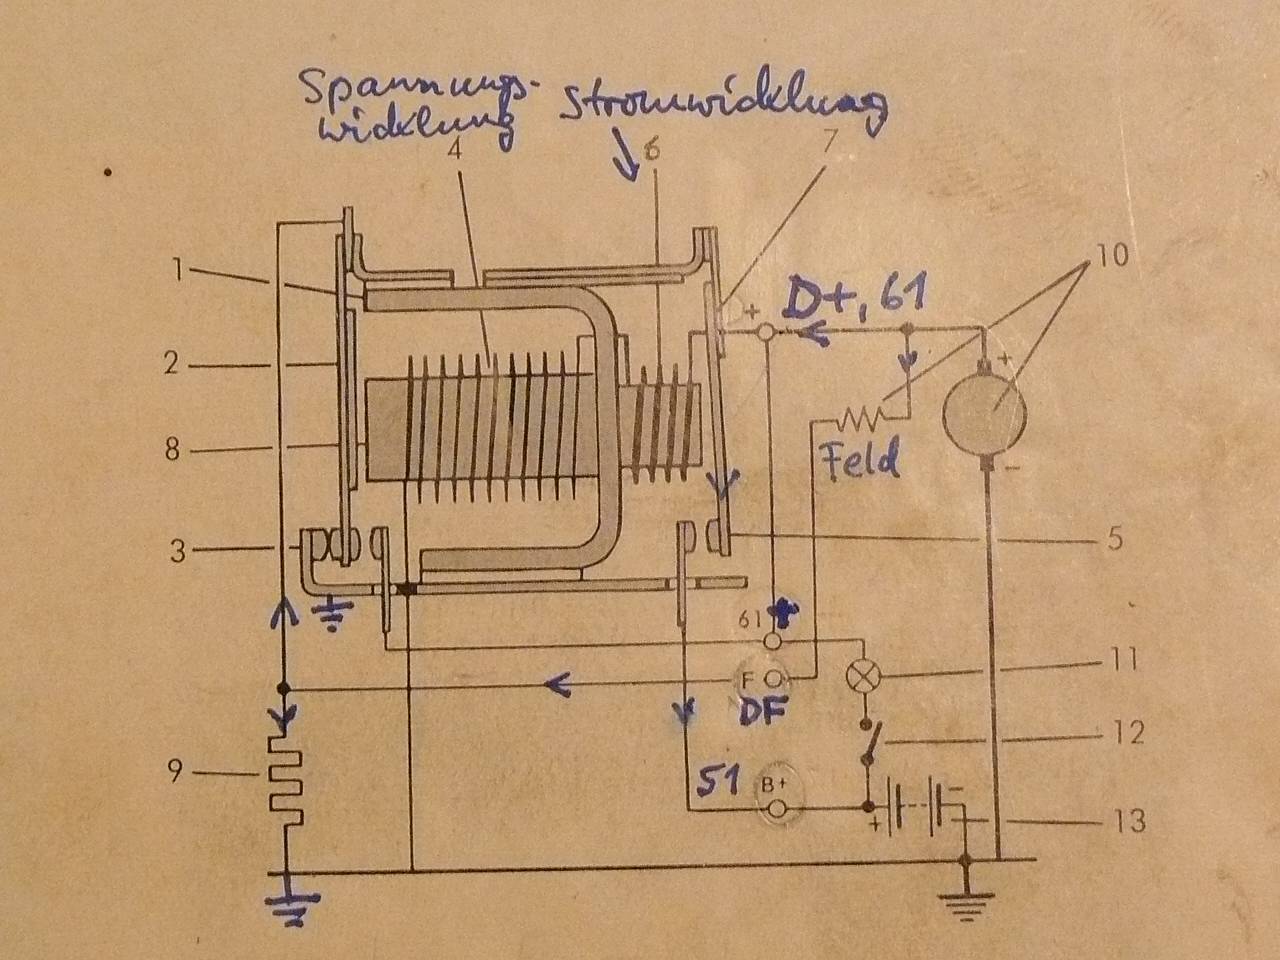 Spannungs-
wicklung
Stromwicklung
4
6
7
1
10
+
D+, 61
2
+
8
Feld
-
3
5
61 +
F
11
DF
12
9
51
B+
-
+
13